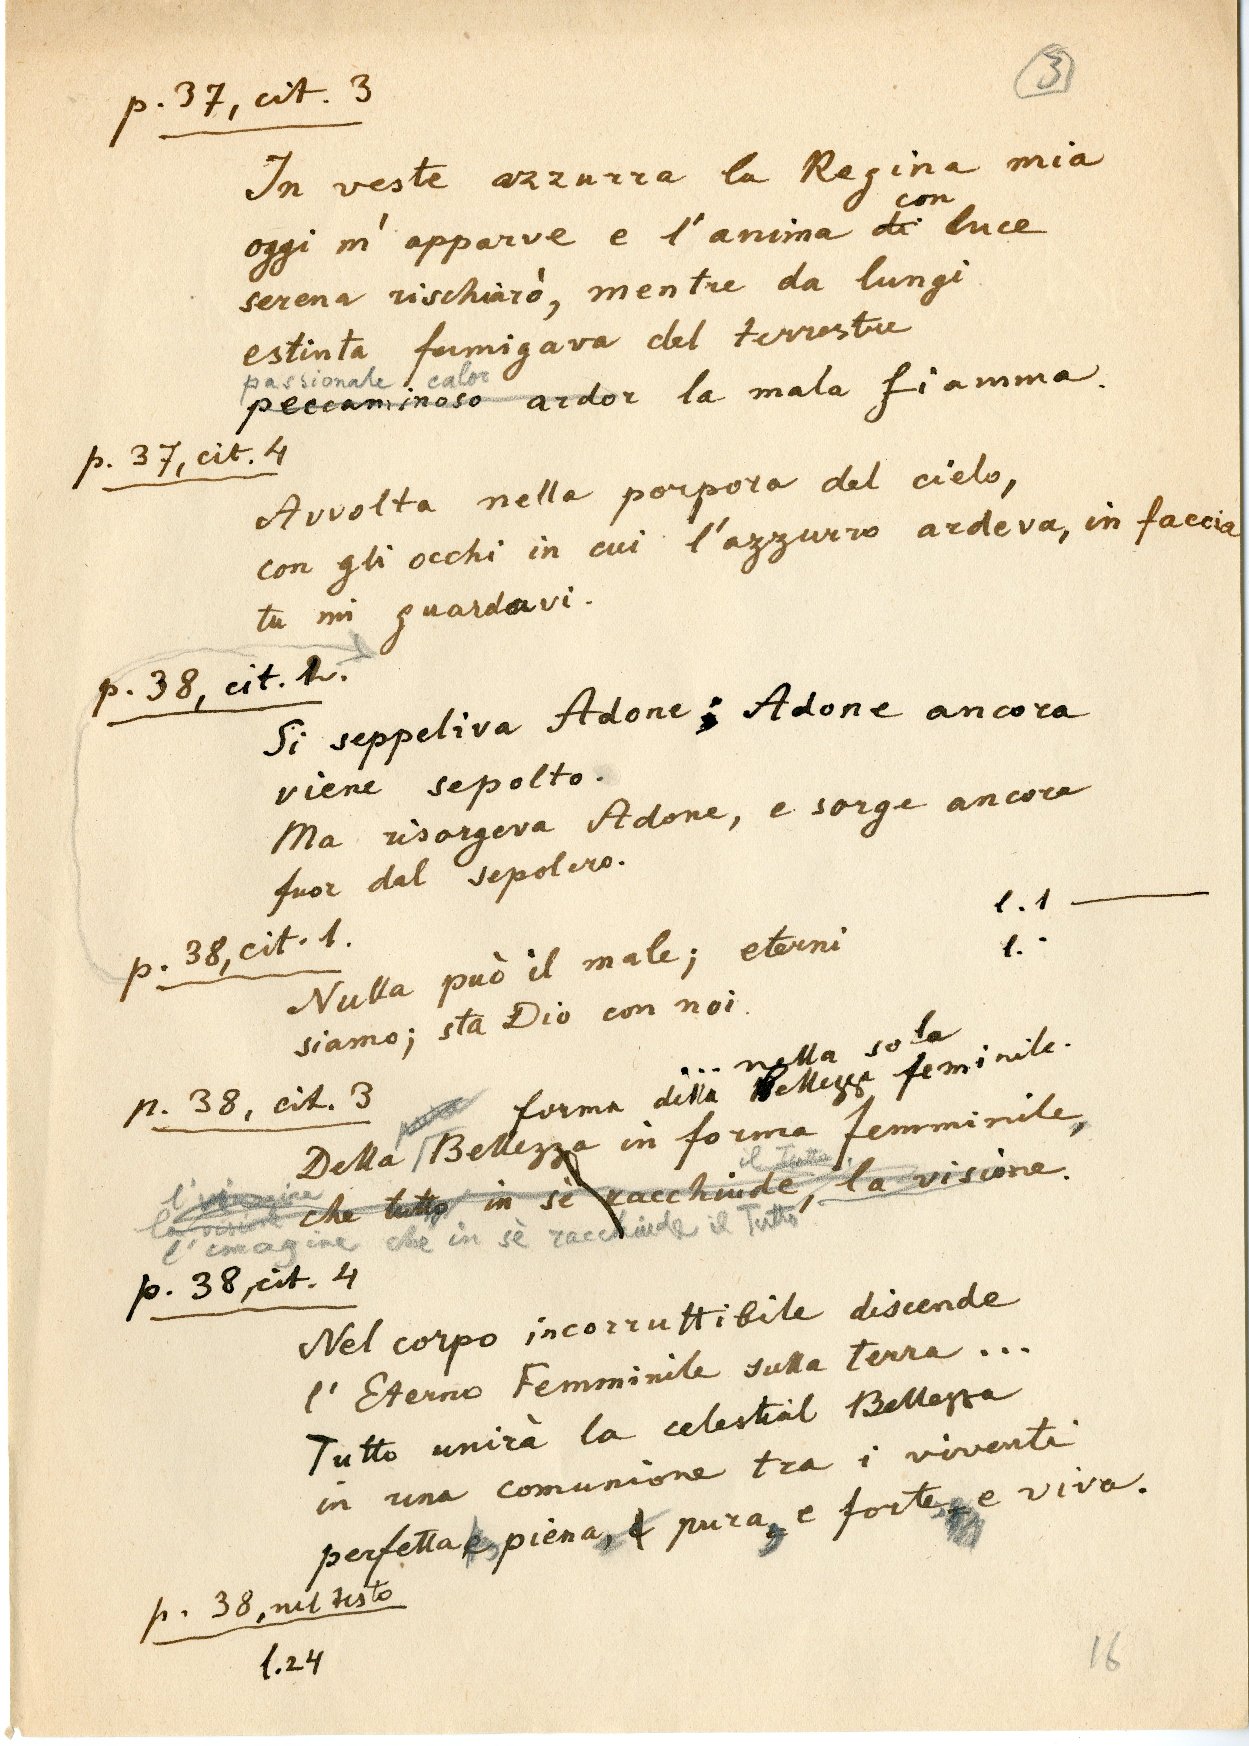 3
p. 37, cit. 3
In veste azzurra la Regina mia
con
oggi m' apparve e l'anima di luce
serena rischiarò, mentre da lungi
estinta fumigava del terrestre
passionale calor
peccaminoso ardor la mala fiamma.
p. 37, cit. 4
Avvolta nella porpora del cielo,
con gli occhi in cui l'azzurro ardeva, in faccia
tu mi guardavi.
p. 38, cit. 2.
Si seppeliva Adone; Adone ancora
viene sepolto.
Ma risorgeva Adone, e sorge ancora
fuor dal sepolcro.
l. 1
p. 38, cit. 1.
l.
Nulla può il male; eterni
siamo; sta Dio con noi.
... nella sola
forma della Bellezza feminile.
p. 38, cit. 3
Della Bellezza in forma femminile,
il Tutto
che tutto in sè racchiude, la visione.
l'imagine che in sè racchiude il Tutto
p. 38, cit. 4
Nel corpo incorruttibile discende
l' Eterno Femminile sulla terra ...
Tutto unirà la celestial Bellezza
in una comunione tra i viventi
perfetta, piena, pura, e forte, e viva.
p. 38, nel testo
l. 24
16